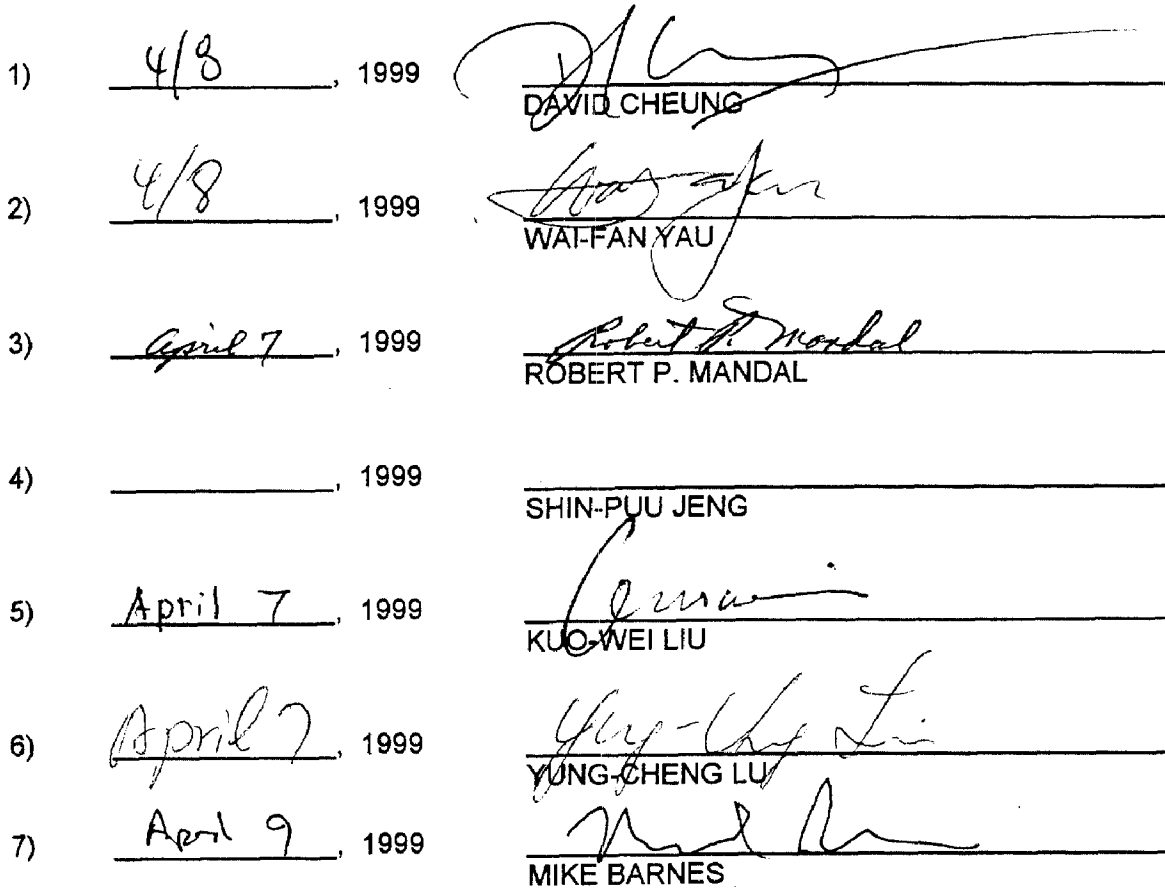 1) 4/8, 1999
DAVID CHEUNG
2) 4/8, 1999
WAI-FAN YAU
3) April 7, 1999 Robert P. Mandal
ROBERT P. MANDAL
4) , 1999
SHIN-PUU JENG
5) April 7, 1999
KUO-WEI LIU
6) April 7, 1999
YUNG-CHENG LU
7) April 9, 1999
MIKE BARNES